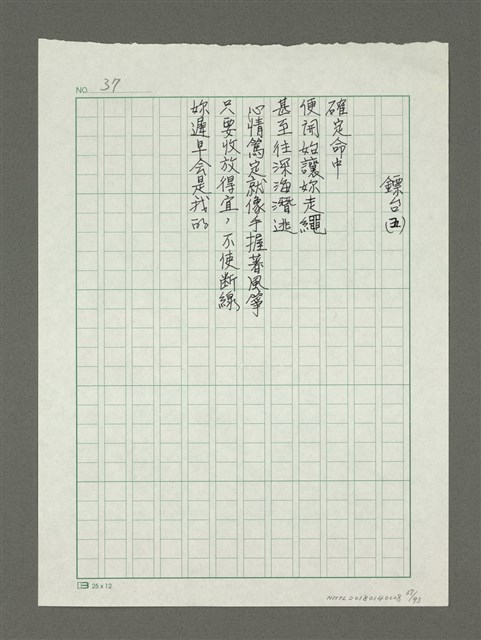 NO. 37
鏢台(五)
確定命中
便開始讓妳走繩
甚至往深海潛逃
心情篤定就像手握著風箏
只要收放得宜，不使斷線
妳遲早会是我的
25 x 12
NMTL20180140008